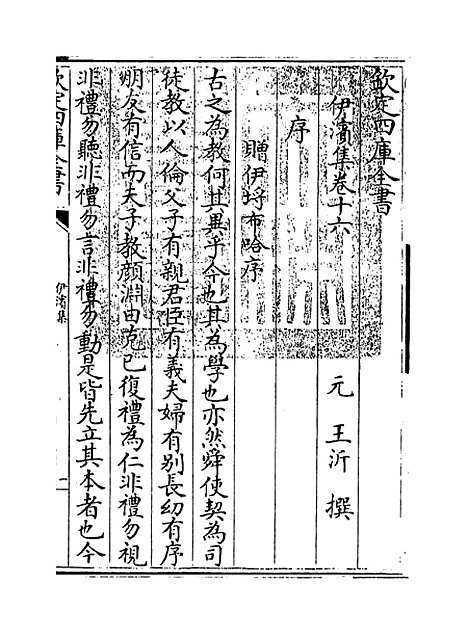 欽定四庫全書
伊濱集卷十六
元 王沂 撰
序
贈伊埒布哈序
古之為教何其異乎今也其為學也亦然舜使契為司
徒教以人倫父子有親君臣有義夫婦有別長幼有序
朋友有信而夫子教顔淵曰克已復禮為仁非禮勿視
非禮勿聽非禮勿言非禮勿動是皆先立其本者也今
欽定四庫全書
伊濱集
一